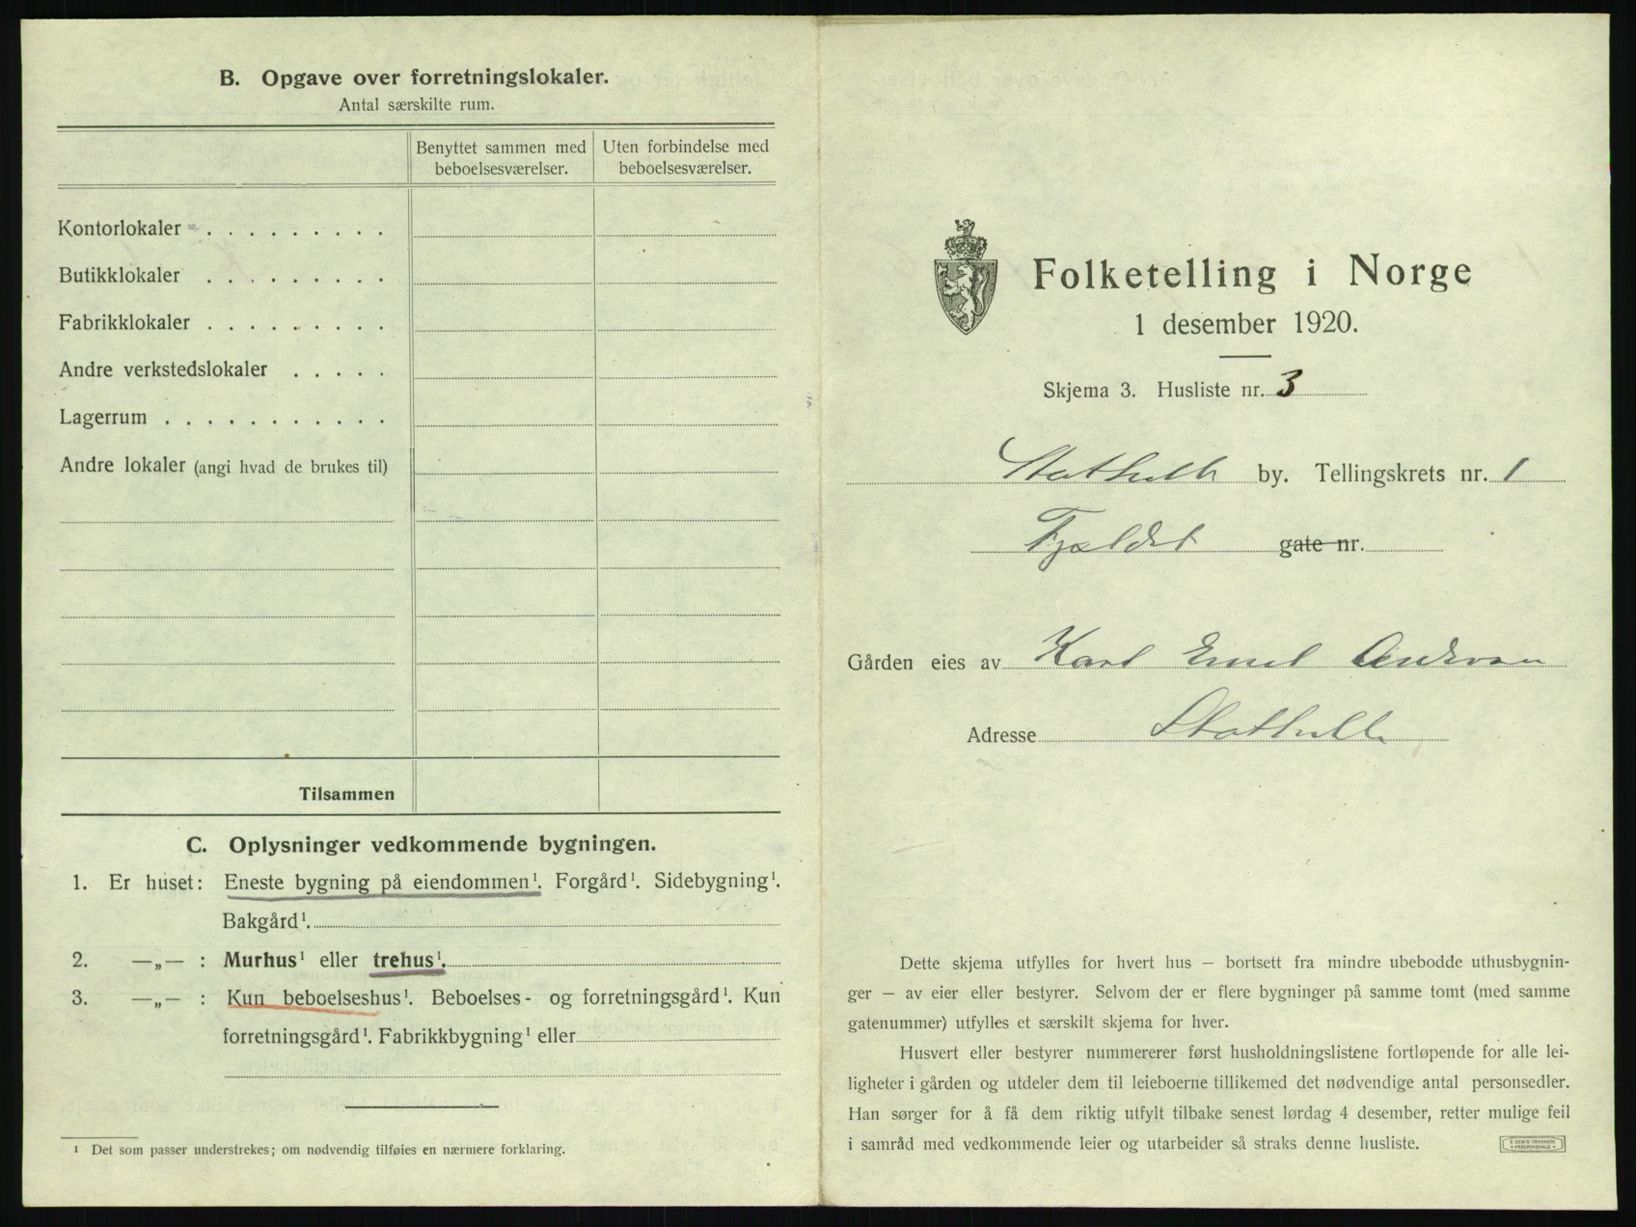 B. Opgave over forretningslokaler.
Antal særskilte rum.
Benyttet sammen med beboelsesværelser.
Uten forbindelse med beboelsesværelser.
Kontorlokaler . . . . . . . . .
Butikklokaler . . . . . . . . .
Fabrikklokaler . . . . . . . . .
Andre verkstedslokaler . . . . .
Lagerrum . . . . . . . . . . .
Andre lokaler (angi hvad de brukes til)
Tilsammen
C. Oplysninger vedkommende bygningen.
1. Er huset: Eneste bygning på eiendommen¹. Forgård¹. Sidebygning¹.
Bakgård¹.
2. —„— : Murhus¹ eller trehus¹.
3. —„— : Kun beboelseshus¹. Beboelses- og forretningsgård¹. Kun
forretningsgård¹. Fabrikkbygning¹ eller
¹ Det som passer understrekes; om nødvendig tilføies en nærmere forklaring.
Folketelling i Norge
1 desember 1920.
Skjema 3. Husliste nr. 3
Stathelle by. Tellingskrets nr. 1
Fjeldet gate nr.
Gården eies av Karl Emil Andersen
Adresse Stathelle
Dette skjema utfylles for hvert hus — bortsett fra mindre ubebodde uthusbygnin-
ger — av eier eller bestyrer. Selvom der er flere bygninger på samme tomt (med samme
gatenummer) utfylles et særskilt skjema for hver.
Husvert eller bestyrer nummererer først husholdningslistene fortløpende for alle lei-
ligheter i gården og utdeler dem til leieboerne tillikemed det nødvendige antal personsedler.
Han sørger for å få dem riktig utfylt tilbake senest lørdag 4 desember, retter mulige feil
i samråd med vedkommende leier og utarbeider så straks denne husliste.